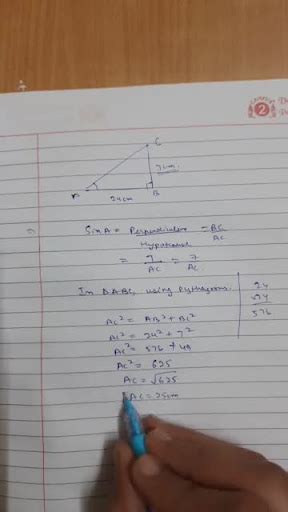 2
C
7cm
A
24cm
B
Sin A = Perpendicular = BC
Hypotenuse AC
= 7 = 7
AC AC
In ΔABC, using Pythagoras.
24
24
576
AC² = AB² + BC²
AC² = 24² + 7²
AC² = 576 + 49
AC² = 625
AC = √625
AC = 25cm